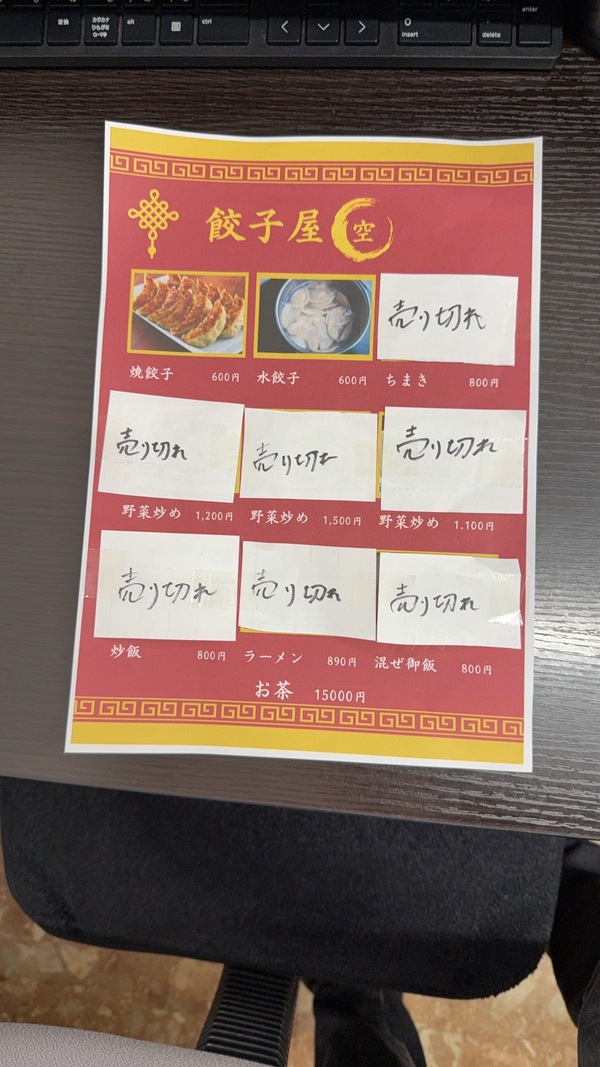 変換
カタカナ
ひらがな
ローマ字
alt
ctrl
0
insert
.
delete
enter
餃子屋 空
売り切れ
焼餃子 600円 水餃子 600円 ちまき 800円
売り切れ 売り切れ 売り切れ
野菜炒め 1,200円 野菜炒め 1,500円 野菜炒め 1.100円
売り切れ 売り切れ 売り切れ
炒飯 800円 ラーメン 890円 混ぜ御飯 800円
お茶 15000円